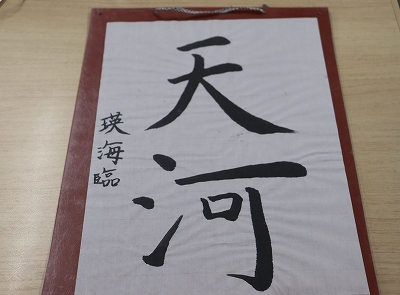 天河
瑛海臨